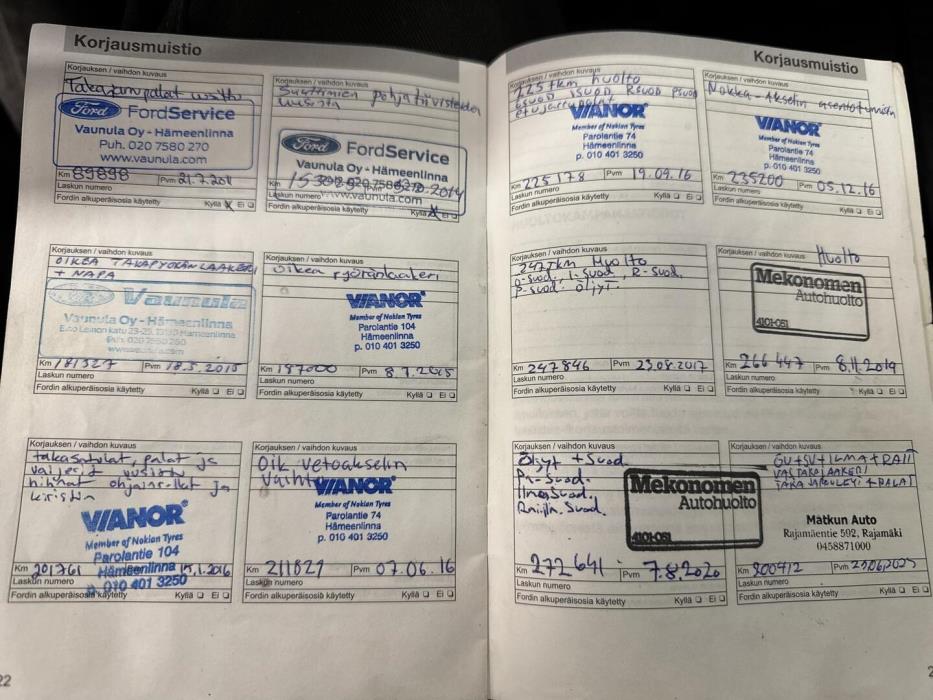 Korjausmuistio
Korjauksen / vaihdon kuvaus
Takajarrupalat
Ford FordService
Vaunula Oy - Hämeenlinna
Puh. 020 7580 270
www.vaunula.com
Km 89898 Pvm 21.7.2011
Laskun numero
Fordin alkuperäisosia käytetty Kyllä Ei
Korjauksen / vaihdon kuvaus
Suuttimien pohjatiivisteiden
uusinta
Ford FordService
Vaunula Oy - Hämeenlinna
020 7580 270
www.vaunula.com
Km Pvm 2014
Fordin alkuperäisosia käytetty Kyllä Ei
Korjauksen / vaihdon kuvaus
OIKEA TAKAPYÖRÄNLAAKERI
+ NAPA
Vaunula
Vaunula Oy - Hämeenlinna
Eino Leinon katu 23-25, Hämeenlinna
Puh. 020 7580 270
www.vaunula.com
Km 181327 Pvm 18.5.2015
Laskun numero
Fordin alkuperäisosia käytetty Kyllä Ei
Korjauksen / vaihdon kuvaus
Oikea pyöränlaakeri
VIANOR
Member of Nokian Tyres
Parolantie 104
Hämeenlinna
p. 010 401 3250
Km 187000 Pvm 8.7.2015
Laskun numero
Fordin alkuperäisosia käytetty Kyllä Ei
Korjauksen / vaihdon kuvaus
takasatulat, palat ja
vaijerit uusittu
hihnat ohjainrullat ja
kiristin
VIANOR
Member of Nokian Tyres
Parolantie 104
Hämeenlinna
p. 010 401 3250
Km 201761 Pvm 15.1.2016
Laskun numero
Fordin alkuperäisosia käytetty Kyllä Ei
Korjauksen / vaihdon kuvaus
Oik. vetoakselin
vaihto
VIANOR
Member of Nokian Tyres
Parolantie 74
Hämeenlinna
p. 010 401 3250
Km 211821 Pvm 07.06.16
Laskun numero
Fordin alkuperäisosia käytetty Kyllä Ei
22
Korjausmuistio
Korjauksen / vaihdon kuvaus
225tkm huolto
etujarrupalat
VIANOR
Member of Nokian Tyres
Parolantie 74
Hämeenlinna
p. 010 401 3250
Km 225178 Pvm 19.09.16
Laskun numero
Fordin alkuperäisosia käytetty Kyllä Ei
Korjauksen / vaihdon kuvaus
Nokka-akselin asentotunnistin
VIANOR
Member of Nokian Tyres
Parolantie 74
Hämeenlinna
p. 010 401 3250
Km 235200 Pvm 05.12.16
Laskun numero
Fordin alkuperäisosia käytetty Kyllä Ei
Korjauksen / vaihdon kuvaus
247tkm Huolto
ö-suod. i-suod, R-suod.
P-suod. öljyt.
Km 247846 Pvm 23.08.2017
Laskun numero
Fordin alkuperäisosia käytetty Kyllä Ei
Korjauksen / vaihdon kuvaus
Huolto
Mekonomen
Autohuolto
4101-051
Km 266 447 Pvm 8.11.2019
Laskun numero
Fordin alkuperäisosia käytetty Kyllä Ei
Korjauksen / vaihdon kuvaus
Öljyt + Suod.
Pa-Suod.
Ilmasuod.
Raitis. Suod.
Mekonomen
Autohuolto
4101-051
Km 272 641 Pvm 7.8.2020
Laskun numero
Fordin alkuperäisosia käytetty Kyllä Ei
Korjauksen / vaihdon kuvaus
ÖV+SV+ILMA+RAIT
TAKALAAKERI
+ PALAT
Matkun Auto
Rajamäentie 592, Rajamäki
0458871000
Km 300412 Pvm
Laskun numero
Fordin alkuperäisosia käytetty Kyllä Ei